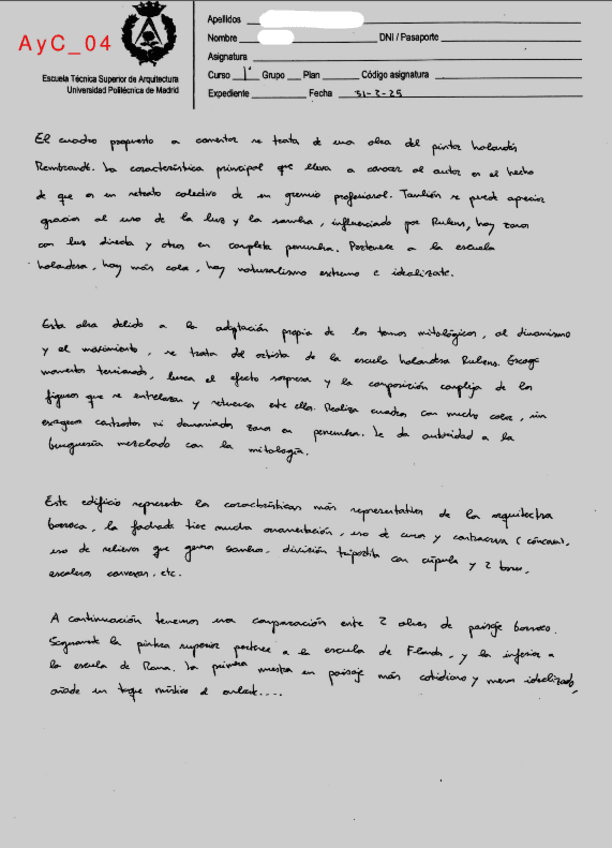 AyC_04
Escuela Técnica Superior de Arquitectura
Universidad Politécnica de Madrid
Apellidos
Nombre DNI / Pasaporte
Asignatura
Curso 1º Grupo Plan Código asignatura
Expediente Fecha 31-3-25
El cuadro propuesto a comentar se trata de una obra del pintor holandés
Rembrandt. La característica principal que lleva a conocer al autor es el hecho
de que es un retrato colectivo de un gremio profesional. También se puede apreciar
gracias al uso de la luz y la sombra, influenciado por Rubens, hay zonas
con luz directa y otras en completa penumbra. Pertenece a la escuela
holandesa, hay más color, hay naturalismo extremo e idealizate.
Esta obra debido a la adaptación propia de los temas mitológicos, al dinamismo
y el movimiento, se trata del artista de la escuela holandesa Rubens. Escoge
momentos tensionados, busca el efecto sorpresa y la composición compleja de las
figuras que se entrelazan y retuercen entre ellas. Realiza cuadros con mucho color, sin
exagerar contrastes ni demasiadas zonas en penumbra. Le da autoridad a la
burguesía mezclado con la mitología.
Este edificio representa las características más representativas de la arquitectura
barroca, la fachada tiene mucha ornamentación, uso de curva y contracurva (cóncava),
uso de relieves que generan sombras, división tripartita con cúpula y 2 torres,
escaleras convexas, etc.
A continuación tenemos una comparación entre 2 obras de paisaje barroco.
Seguramente la pintura superior pertenece a la escuela de Flandes, y la inferior a
la escuela de Roma. La primera muestra un paisaje más cotidiano y menos idealizado,
añade un toque místico al